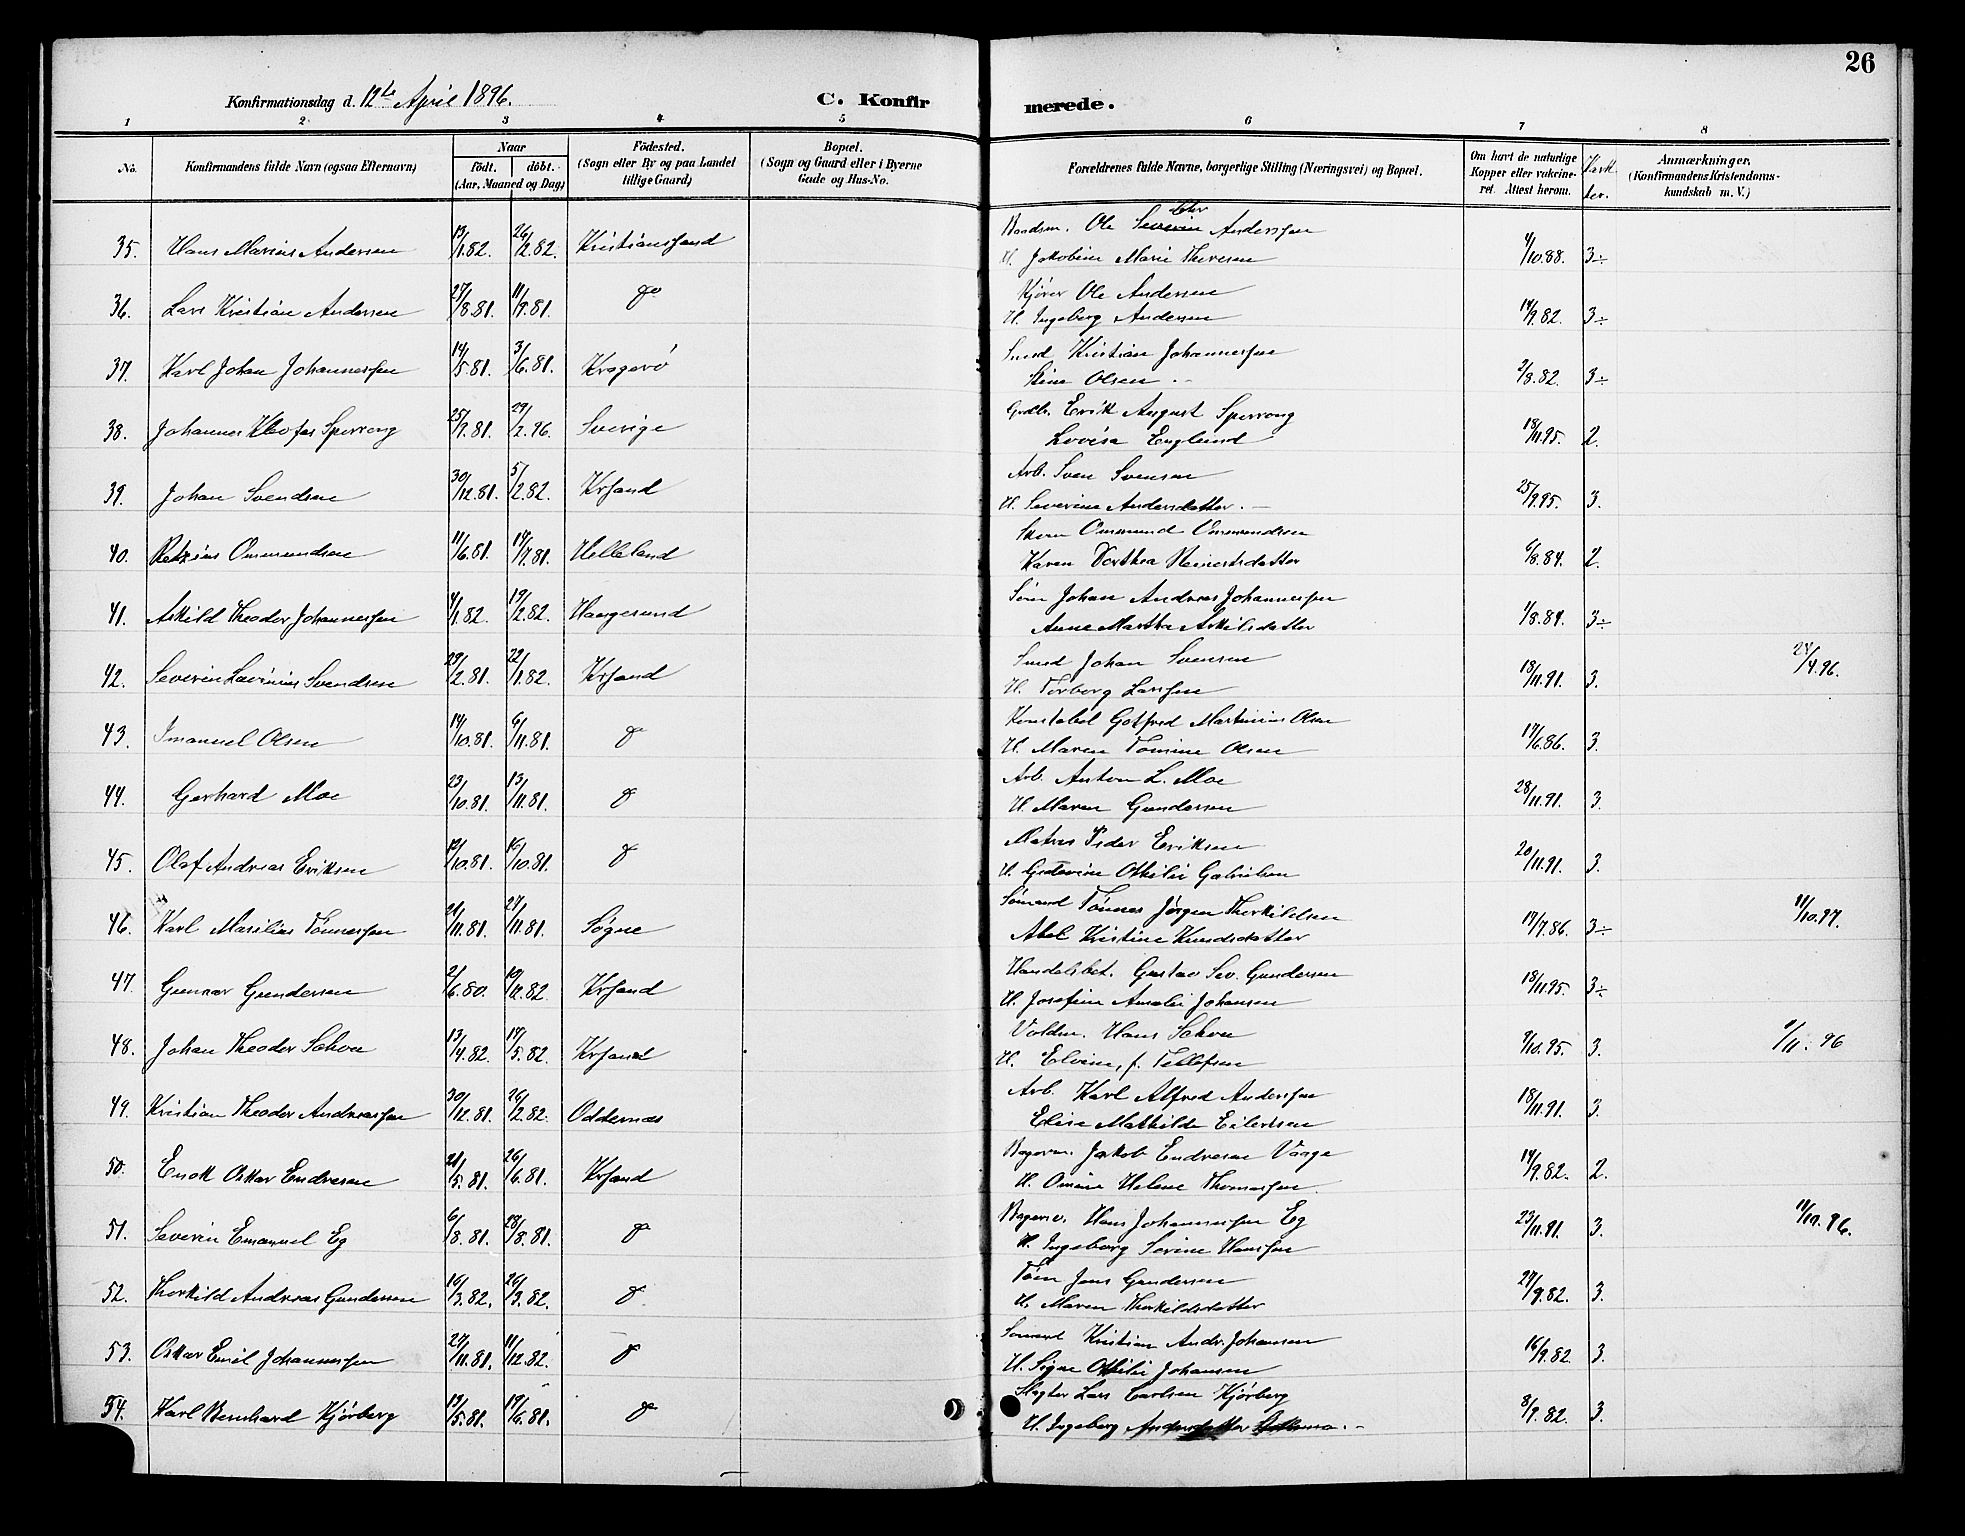 26
Konfirmationsdag d. 12te April 1896.
C. Konfirmerede.
1 2 3 4 5 6 7 8
No.
Konfirmandens fulde Navn (ogsaa Efternavn)
Naar
födt. döbt.
(Aar, Maaned og Dag)
Födested.
(Sogn eller By og paa Landet tillige Gaard)
Bopæl.
(Sogn og Gaard eller i Byerne Gade og Hus-No.
Forældrenes fulde Navne, borgerlige Stilling (Næringsvei) og Bopæl.
Om havt de naturlige Kopper eller vakcineret. Attest herom.
Karakter.
Anmærkninger.
(Konfirmandens Kristendomskundskab m. V.)
35. Hans Marius Andersen 13/1.82. 26/2.82. Kristianssand Ole Chr Severin Anderssen 4/10.88. 3÷
H. Jakobine Marie Theresen
36. Lars Kristian Andersen 27/8.81. 11/9.81. do Kjører Ole Andersen 14/9.82. 3÷
H. Ingeborg Andersen
37. Karl Johan Johannessen 14/5.81. 3/6.81. Kragerö Smed Kristian Johannessen 2/8.82. 3÷
Stine Olsen
38. Johannes Kleofas Sperrong 25/9.81. 29/2.96. Sverige Erik August Sperrong 18/11.95. 2.
Lovisa Englund
39. Johan Svendsen 30/12.81. 5/2.82. Krsand Arb. Sven Svensen 25/9.95. 3.
H. Severine Andersdatter.
40. Ommundsen 11/6.81. 14/7.81. Helleland Ommund Ommundsen 6/8.84. 2.
Karen Dorthea Reinertsdatter
41. Askild Theodor Johannessen 4/1.82. 19/2.82. Haugesund Johan Andreas Johannessen 1/8.84. 3÷
Anne Martha Askildsdatter
42. Severin Lavinius Svendsen 29/2.81. 22/1.82. Krsand Smed Johan Svensen 18/11.91. 3. 24/4.96.
H. Torborg Larssen
43. Imanuel Olsen 14/10.81. 6/11.81. do Konstabel Gotfred Martinius Olsen 17/6.86. 3.
H. Maren Tomine Olsen
44. Gerhard Moe 23/10.81. 13/11.81. do Arb. Anton L. Moe 28/11.91. 3.
H. Maren Gundersen
45. Olaf Andreas Eriksen 12/10.81. 16/10.81. do Matros Peder Eriksen 20/11.91. 3.
H. Ottilie Gabrielsen
46. Karl Marilius Tönnessen 21/11.81. 27/11.81. Søgne Sömand Tönnes Jörgen Thorkildsen 17/7.86. 3÷ 11/10.97.
Abel Kristine Knudsdatter
47. Gunnar Gundersen 2/6.80. 10/12.82. Krsand Handelsbet. Gustav Sev. Gundersen 18/11.95. 3÷
H. Josefine Amalie Johansen
48. Johan Theodor 13/4.82. 17/5.82. Krsand Hans 9/10.95. 3. 9/11.96
H. Elvine, f. Tellefsen
49. Kristian Theodor Andreassen 30/12.81. 26/2.82. Oddernæs Arb. Karl Alfred Anderssen 18/11.91. 3.
Elise Mathilde Eilertsen
50. Enok Oskar Endresen 21/5.81. 26/6.81. Krsand Jakob Endresen Vaage 14/9.82. 2.
H. Omine Helene Thomassen
51. Severin Emanuel Eg 6/8.81. 28/8.81. do Hans Johannessen Eg 23/11.91. 3. 11/10.96.
H. Ingeborg Serine Hanssen
52. Thorkild Andreas Gundersen 16/3.82. 26/3.82. do Töm Jens Gundersen 27/9.82. 3.
H. Maren Thorkildsdatter
53. Oskar Emil Johannessen 27/11.81. 11/12.82. do Kristian Andr. Johansen 16/9.82. 3.
H. Signe Ottilie Johansen
54. Karl Bernhard Kjörberg 13/5.81. 19/6.81. do Slagter Lars Carlsen Kjörberg 8/9.82. 3.
H. Ingeborg Andersdatter